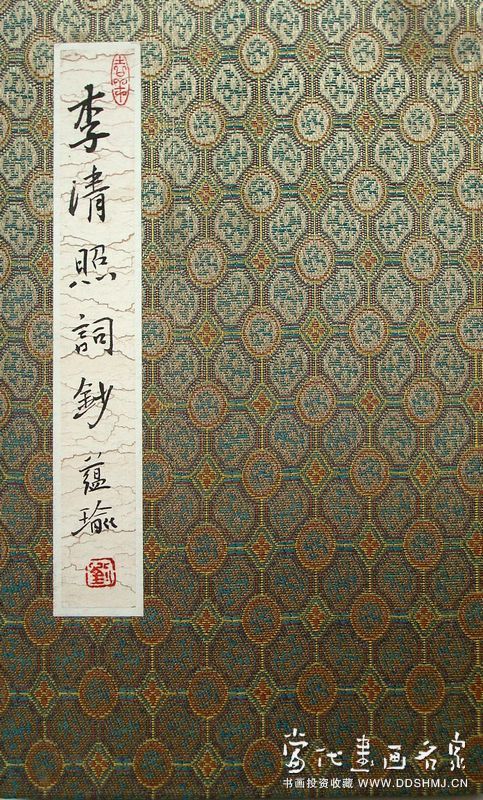 李清照詞鈔
蕴瑜
劉
当代書画名家
书画投资收藏 WWW.DDSHMJ.CN